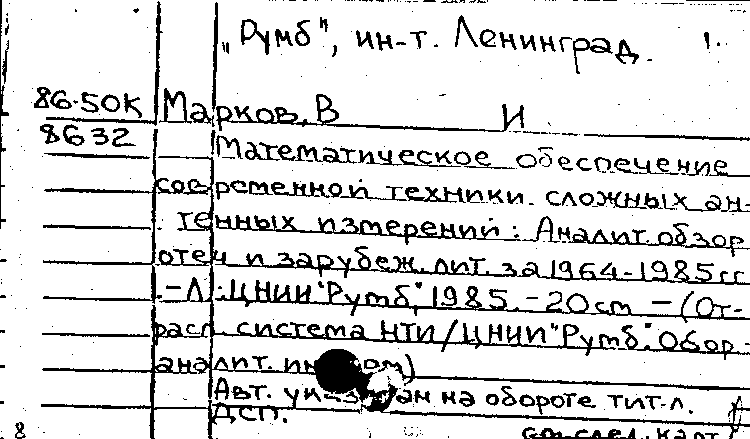 "Румб", ин-т. Ленинград. 1.
86-50К Марков, В И
8632
Математическое обеспечение
современной техники сложных ан-
тенных измерений: Аналит. обзор
отеч и зарубеж. лит. за 1964-1985 гг
.-Л.: ЦНИИ "Румб", 1985.-20 cm - (От-
расл. система НТИ/ЦНИИ "Румб". Обор.-
аналит.
Авт. на обороте тит-л.
ДСП.
8 См. след. карт.